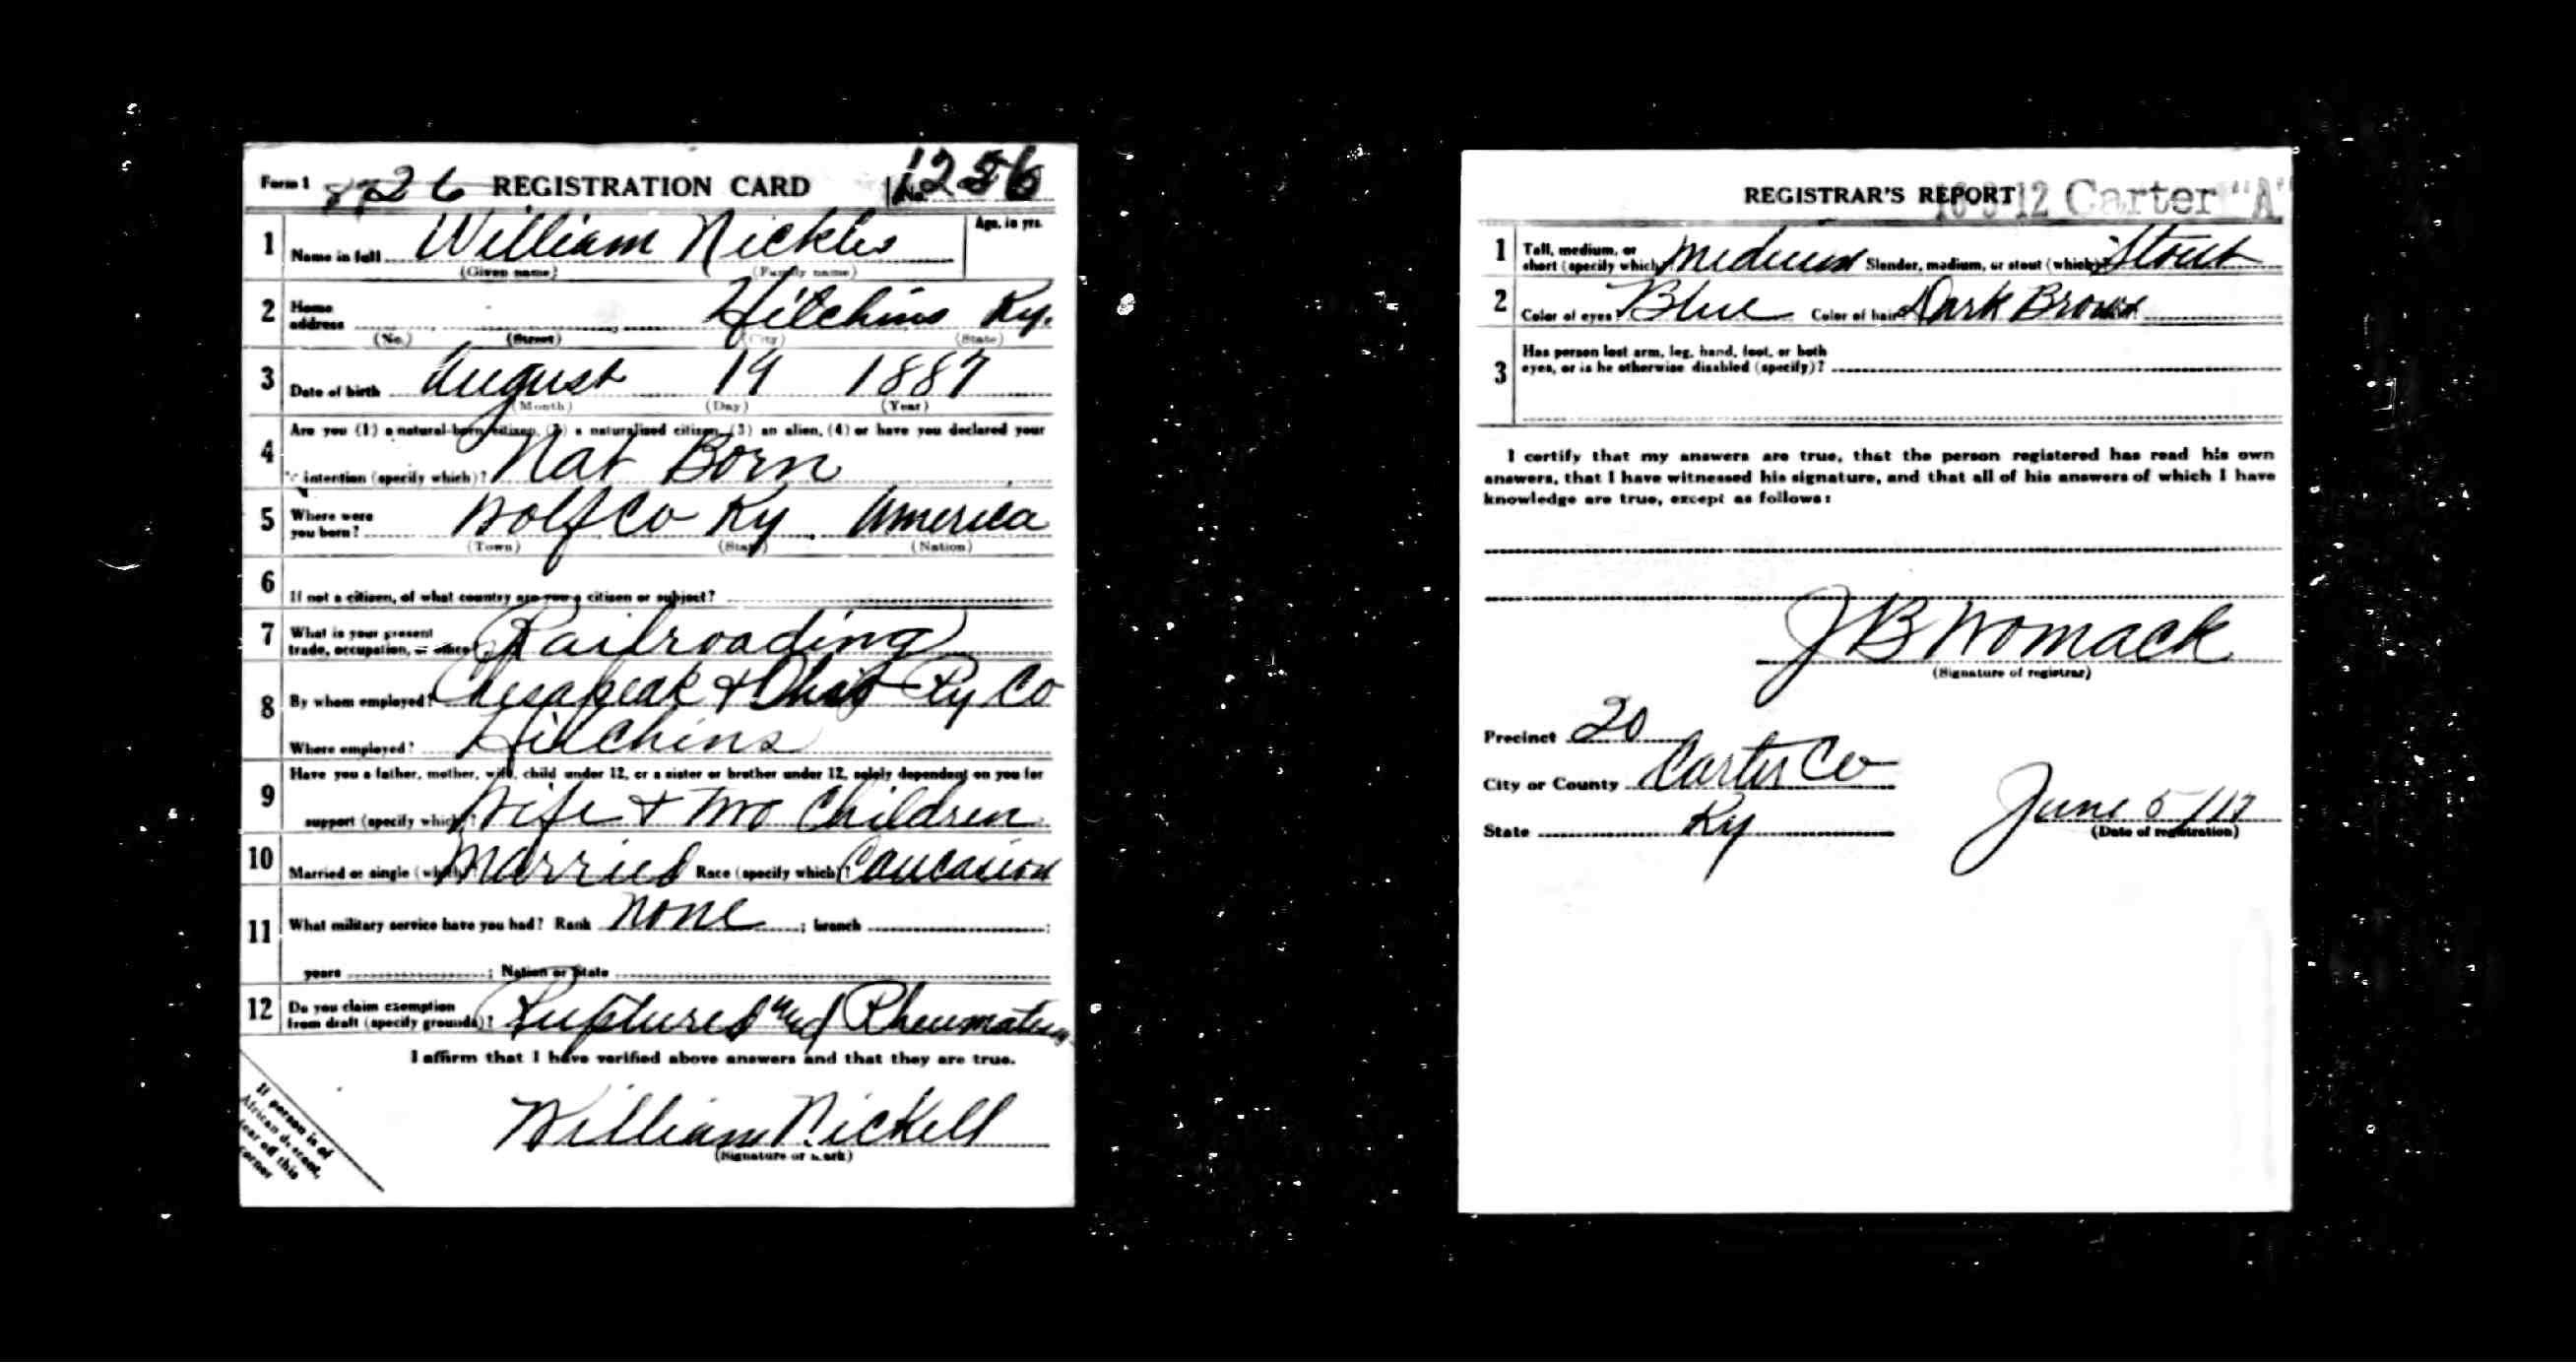 Form 1 26 REGISTRATION CARD No. 1256
1 Name in full William Nickles Age, in yrs.
(Given name) (Family name)
2 Home address Hitchins Ky.
(No.) (Street) (City) (State)
3 Date of birth August 19 1887
(Month) (Day) (Year)
4 Are you (1) a natural-born citizen, (2) a naturalized citizen, (3) an alien, (4) or have you declared your
intention (specify which)? Nat Born
5 Where were you born? Wolf Co Ky America
(Town) (State) (Nation)
6 If not a citizen, of what country are you a citizen or subject?
7 What is your present
trade, occupation, or office? Railroading
8 By whom employed? Chesapeak & Ohio Ry Co
Where employed? Hitchins
9 Have you a father, mother, wife, child under 12, or a sister or brother under 12, solely dependent on you for
support (specify which)? Wife & Two Children
10 Married or single (which)? Married Race (specify which)? Caucasion
11 What military service have you had? Rank None ; branch ;
years ; Nation or State
12 Do you claim exemption
from draft (specify grounds)? Ruptured and Rheumatism
I affirm that I have verified above answers and that they are true.
William Nickell
(Signature or mark)
If person is of
African descent,
tear off this
corner
REGISTRAR'S REPORT 16-3-12 Carter "A"
1 Tall, medium, or
short (specify which) Medium Slender, medium, or stout (which) Stout
2 Color of eyes Blue Color of hair Dark Brown
3 Has person lost arm, leg, hand, foot, or both
eyes, or is he otherwise disabled (specify)?
I certify that my answers are true, that the person registered has read his own
answers, that I have witnessed his signature, and that all of his answers of which I have
knowledge are true, except as follows:
J B Womack
(Signature of registrar)
Precinct 20
City or County Carter Co
State Ky June 5/17
(Date of registration)